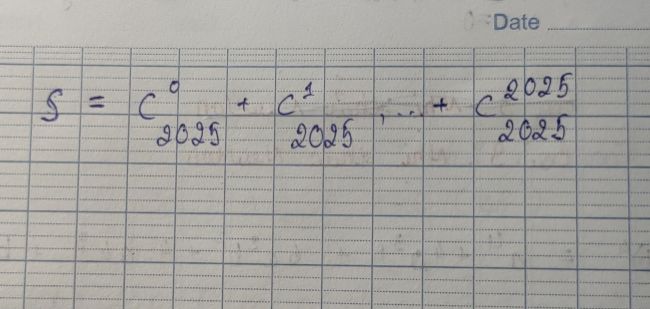 Date
S = C⁰₂₀₂₅ + C¹₂₀₂₅ , ... + C²⁰²⁵₂₀₂₅